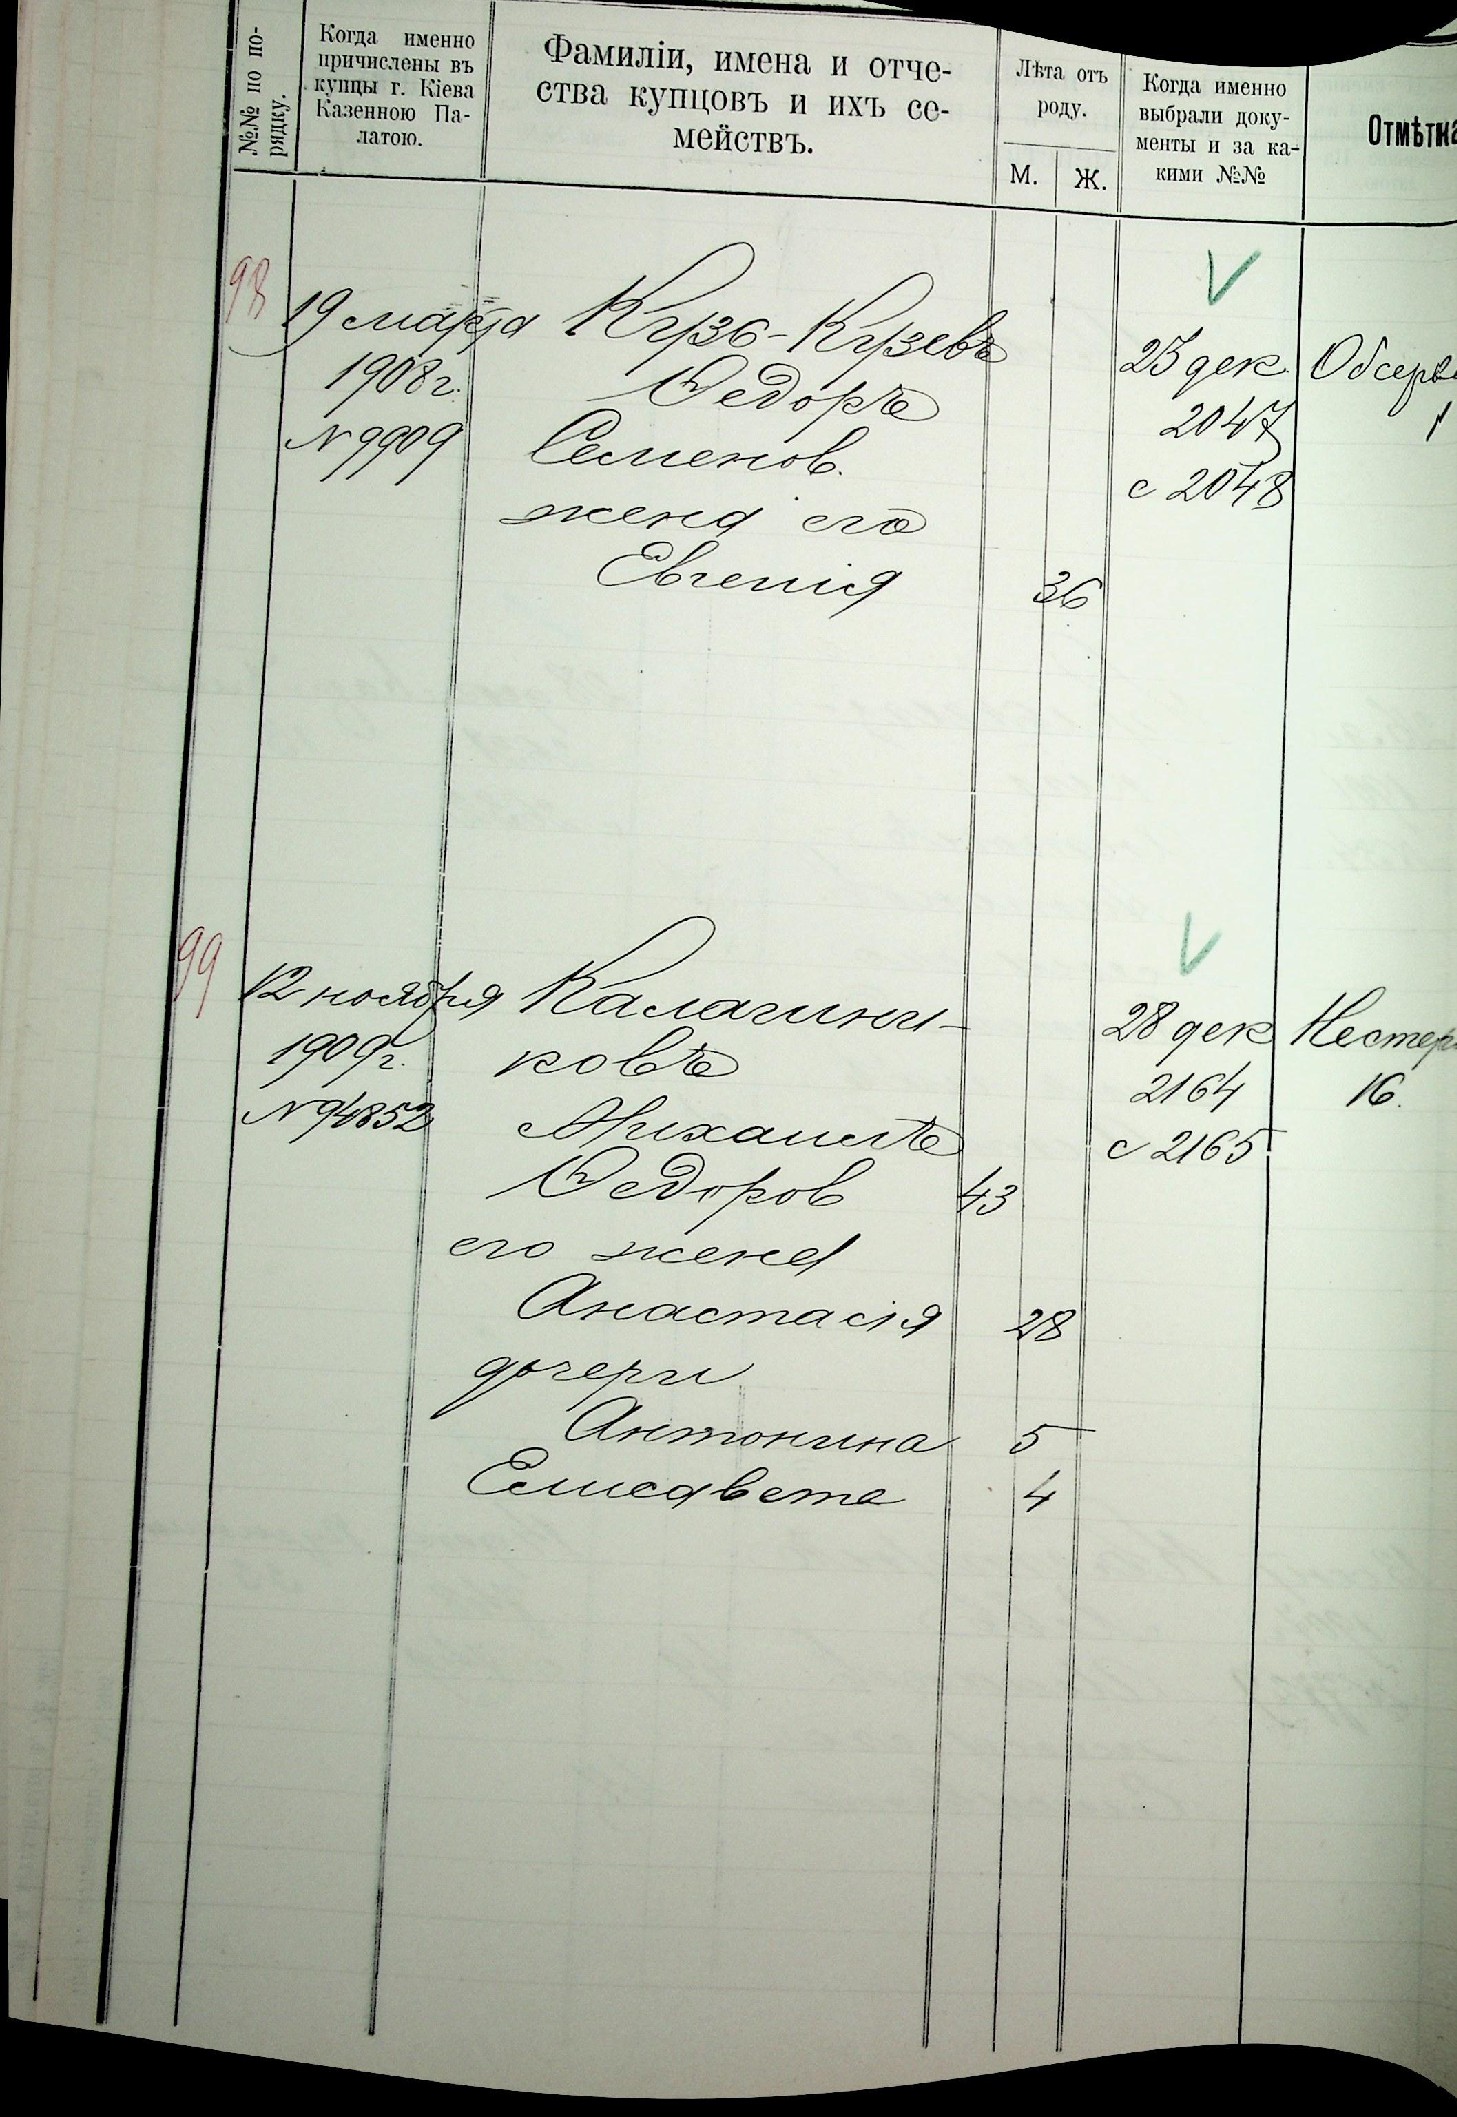 №№ по по-
рядку.
Когда именно
причислены въ
купцы г. Кіева
Казенною Па-
латою.
Фамиліи, имена и отче-
ства купцовъ и ихъ се-
мействъ.
Лѣта отъ
роду.
М. Ж.
Когда именно
выбрали доку-
менты и за ка-
кими №№
Отмѣтка
98
19 марта
1908 г.
N 9909
Кузь-Кузевъ
Ѳедоръ
Семенов.
жена его
Евгенія 36
23 дек.
2047
с 2048
Обсерв
1
99
12 ноября
1909 г.
N 94852
Калачини-
ковъ
Михаилъ
Ѳедоров 43
его жена
Анастасія 28
дочери
Антонина 5
Елисавета 4
28 дек
2164
с 2165
Нестер
16.